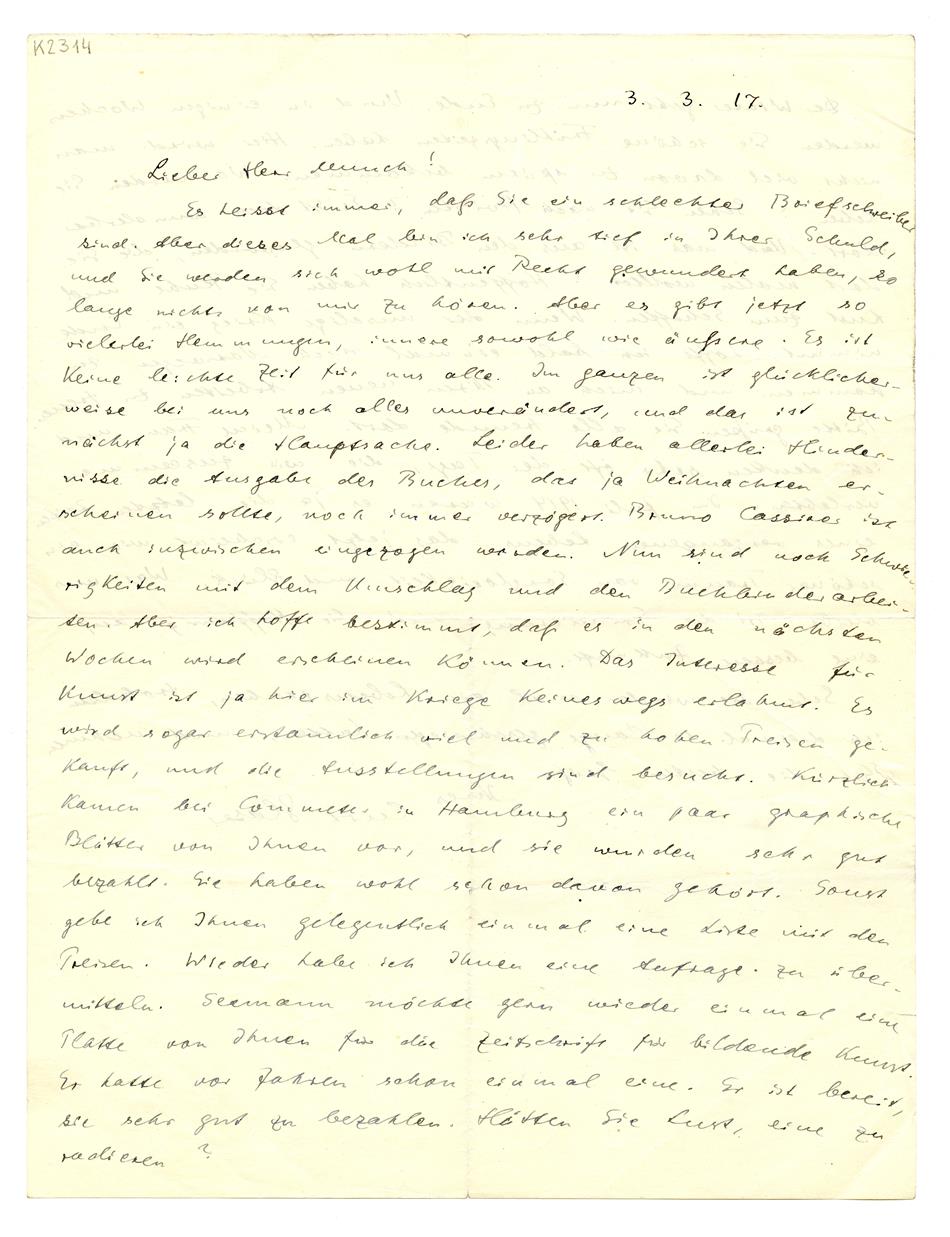 K2314
3. 3. 17.
Lieber Herr Munch!
Es heisst immer, daß Sie ein schlechter Briefschreiber
sind. Aber dieses Mal bin ich sehr tief in Ihrer Schuld,
und Sie werden sich wohl mit Recht gewundert haben, so
lange nichts von mir zu hören. Aber es gibt jetzt so
vielerlei Hemmungen, innere sowohl wie äußere. Es ist
keine leichte Zeit für uns alle. Im ganzen ist glücklicher-
weise bei uns noch alles unverändert, und das ist zu-
nächst ja die Hauptsache. Leider haben allerlei Hinder-
nisse die Ausgabe des Buches, das ja Weihnachten er-
scheinen sollte, noch immer verzögert. Bruno Cassirer ist
auch inzwischen eingezogen worden. Nun sind noch Schwie-
rigkeiten mit dem Umschlag und den Buchbinderarbei-
ten. Aber ich hoffe bestimmt, daß es in den nächsten
Wochen wird erscheinen können. Das Interesse für
Kunst ist ja hier im Kriege keineswegs erlahmt. Es
wird sogar erstaunlich viel und zu hohen Preisen ge-
kauft, und die Ausstellungen sind besucht. Kürzlich
kamen bei Commeter in Hamburg ein paar graphische
Blätter von Ihnen vor, und sie wurden sehr gut
bezahlt. Sie haben wohl schon davon gehört. Sonst
gebe ich Ihnen gelegentlich einmal eine Liste mit den
Preisen. Wieder habe ich Ihnen eine Anfrage zu über-
mitteln. Seemann möchte gern wieder einmal eine
Platte von Ihnen für die Zeitschrift für bildende Kunst.
Er hatte vor Jahren schon einmal eine. Er ist bereit,
sie sehr gut zu bezahlen. Hätten Sie Lust, eine zu
radieren?